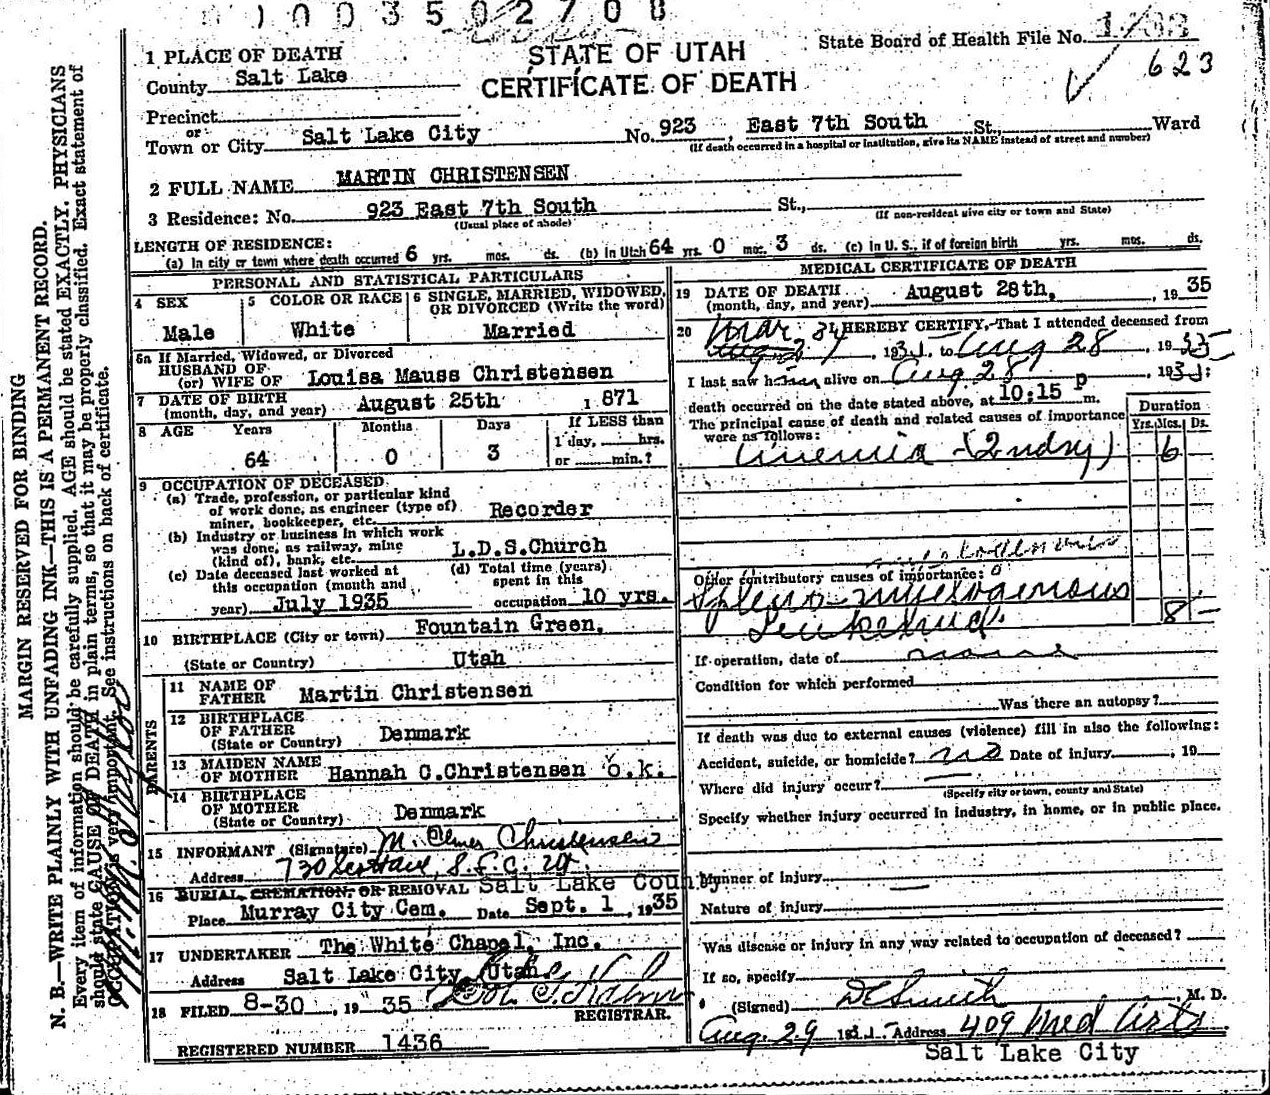 0 1 0 0 3 5 0 2 7 0 8
STATE OF UTAH
CERTIFICATE OF DEATH
State Board of Health File No.
623
1 PLACE OF DEATH
County Salt Lake
Precinct
or
Town or City Salt Lake City No. 923, East 7th South St., Ward
(If death occurred in a hospital or institution, give its NAME instead of street and number)
2 FULL NAME MARTIN CHRISTENSEN
3 Residence: No. 923 East 7th South St.,
(Usual place of abode) (If non-resident give city or town and State)
LENGTH OF RESIDENCE:
(a) In city or town where death occurred 6 yrs. mos. ds. (b) In Utah 64 yrs. 0 mos. 3 ds. (c) In U. S., if of foreign birth yrs. mos. ds.
PERSONAL AND STATISTICAL PARTICULARS
4 SEX
Male
5 COLOR OR RACE
White
6 SINGLE, MARRIED, WIDOWED,
OR DIVORCED (Write the word)
Married
6a If Married, Widowed, or Divorced
HUSBAND OF
(or) WIFE OF Louisa Mauss Christensen
7 DATE OF BIRTH
(month, day, and year) August 25th 1871
8 AGE Years Months Days If LESS than
1 day, hrs.
64 0 3 or min.?
9 OCCUPATION OF DECEASED
(a) Trade, profession, or particular kind
of work done, as engineer (type of)
miner, bookkeeper, etc. Recorder
(b) Industry or business in which work
was done, as railway, mine
(kind of), bank, etc. L.D.S.Church
(c) Date deceased last worked at
this occupation (month and
year) July 1935
(d) Total time (years)
spent in this
occupation 10 yrs.
10 BIRTHPLACE (City or town) Fountain Green,
(State or Country) Utah
PARENTS
11 NAME OF
FATHER Martin Christensen
12 BIRTHPLACE
OF FATHER
(State or Country) Denmark
13 MAIDEN NAME
OF MOTHER Hannah C.Christensen o.k.
14 BIRTHPLACE
OF MOTHER
(State or Country) Denmark
15 INFORMANT (Signature) M. Elmer Christensen
Address
16 BURIAL, CREMATION, OR REMOVAL Salt Lake County
Place Murray City Cem. Date Sept. 1, 1935
17 UNDERTAKER The White Chapel, Inc.
Address Salt Lake City, Utah.
18 FILED 8-30, 1935
REGISTRAR.
REGISTERED NUMBER 1436
MEDICAL CERTIFICATE OF DEATH
19 DATE OF DEATH
(month, day, and year) August 28th, 1935
20 I HEREBY CERTIFY, That I attended deceased from
Mar. 34, to Aug 28, 1935
I last saw him alive on Aug 28, 193
death occurred on the date stated above, at 10:15 p m.
The principal cause of death and related causes of importance
were as follows:
Duration
Yrs. Mos. Ds.
Anemia (2ndry) 6
Other contributory causes of importance:
Spleno-myelogenous
Leukemia. 8 -
If operation, date of none
Condition for which performed
Was there an autopsy?
If death was due to external causes (violence) fill in also the following:
Accident, suicide, or homicide? no Date of injury, 19
Where did injury occur?
(Specify city or town, county and State)
Specify whether injury occurred in industry, in home, or in public place.
Manner of injury
Nature of injury
Was disease or injury in any way related to occupation of deceased?
If so, specify
(Signed) D C Smith M. D.
Aug. 29 193 Address 409 Med Arts
Salt Lake City
MARGIN RESERVED FOR BINDING
N. B.—WRITE PLAINLY WITH UNFADING INK—THIS IS A PERMANENT RECORD.
Every item of information should be carefully supplied. AGE should be stated EXACTLY. PHYSICIANS
should state CAUSE OF DEATH in plain terms, so that it may be properly classified. Exact statement of
OCCUPATION is very important. See instructions on back of certificate.